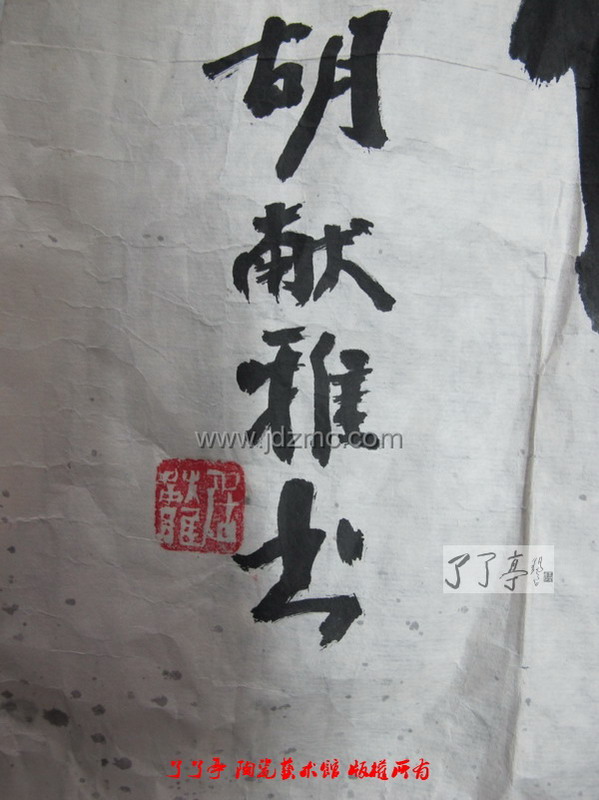 胡献雅书
www.jdzmc.com
了了亭
了了亭 陶瓷艺术馆 版权所有